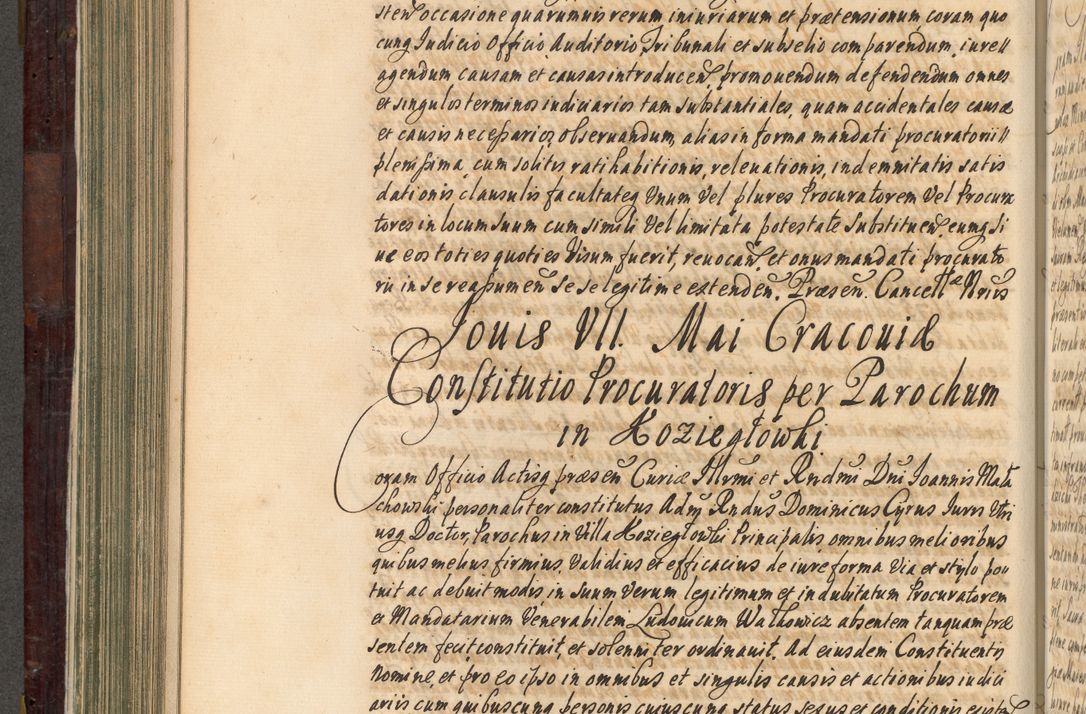 sten occasione quarumuis rerum iniuriarum et prætensionum coram quo
cunq Judicio Officio Auditorio Tribunali et subselio comparendum, iurell
agendum causam et causas introducen, promouendum defendendum omnes
et singulos terminos iudiciarios tam substantiales, quam accidentales causæ
et causis necessarios, obseruandum, alias in forma mandati procuratorii
plenissima, cum solitis, ratihabitionis, releuationis, indemnitatis satis
dationis clausulis facultateq Unum Vel plures Procuratorem Vel Procura
tores in locum suum cum simili Vel limitata potestate Substituen, eumq Si
ue eos toties quoties Visum fuerit, reuocan, et onus mandati procurato
rii in se reassumen se se legitime extenden. Præsen. Cancellæ Nrius
Jouis VII. Mai Cracouiæ
Constitutio Procuratoris per Parochum
in Koziegłowki
Coram Officio Actisq præsen Curiæ Illrmi et Rndmi Dni Joannis Mała
chowski personaliter constitutus Admi Rndus Dominicus Cyrus Juris Utri
usq Doctor, Parochus in Villa Koziegłowki Principalis, omnibus melioribus
quibus melius, firmius, Validius et efficacius de iure forma Via et stylo pou
tuit ac debuit modis in suum Verum legitimum et indubitatum Procuratorem
et Mandatarium Venerabilem Ludouicum Walkowicz absentem tanquam præ
sentem fecit constituit, et solenniter ordinauit. Ad eiusdem Constituentis
Nomine, et pro eo ipso in omnibus et singulis causis et actionibus iudici
ariis cum quibuscunq personis cuiuscunq status sexus et conditionis existen